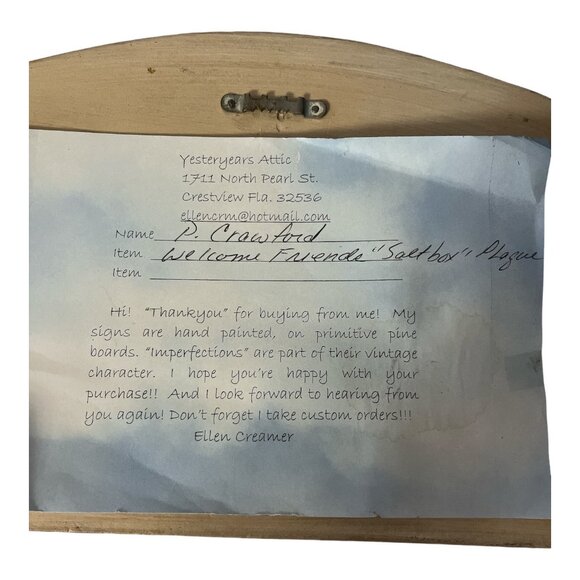 Yesteryears Attic
1711 North Pearl St.
Crestview Fla. 32536
ellencrm@hotmail.com
Name P. Crawford
Item Welcome Friends "Saltbox" Plaque
Item
Hi! "Thankyou" for buying from me! My
signs are hand painted, on primitive pine
boards. "Imperfections" are part of their vintage
character. I hope you're happy with your
purchase!! And I look forward to hearing from
you again! Don't forget I take custom orders!!!
Ellen Creamer